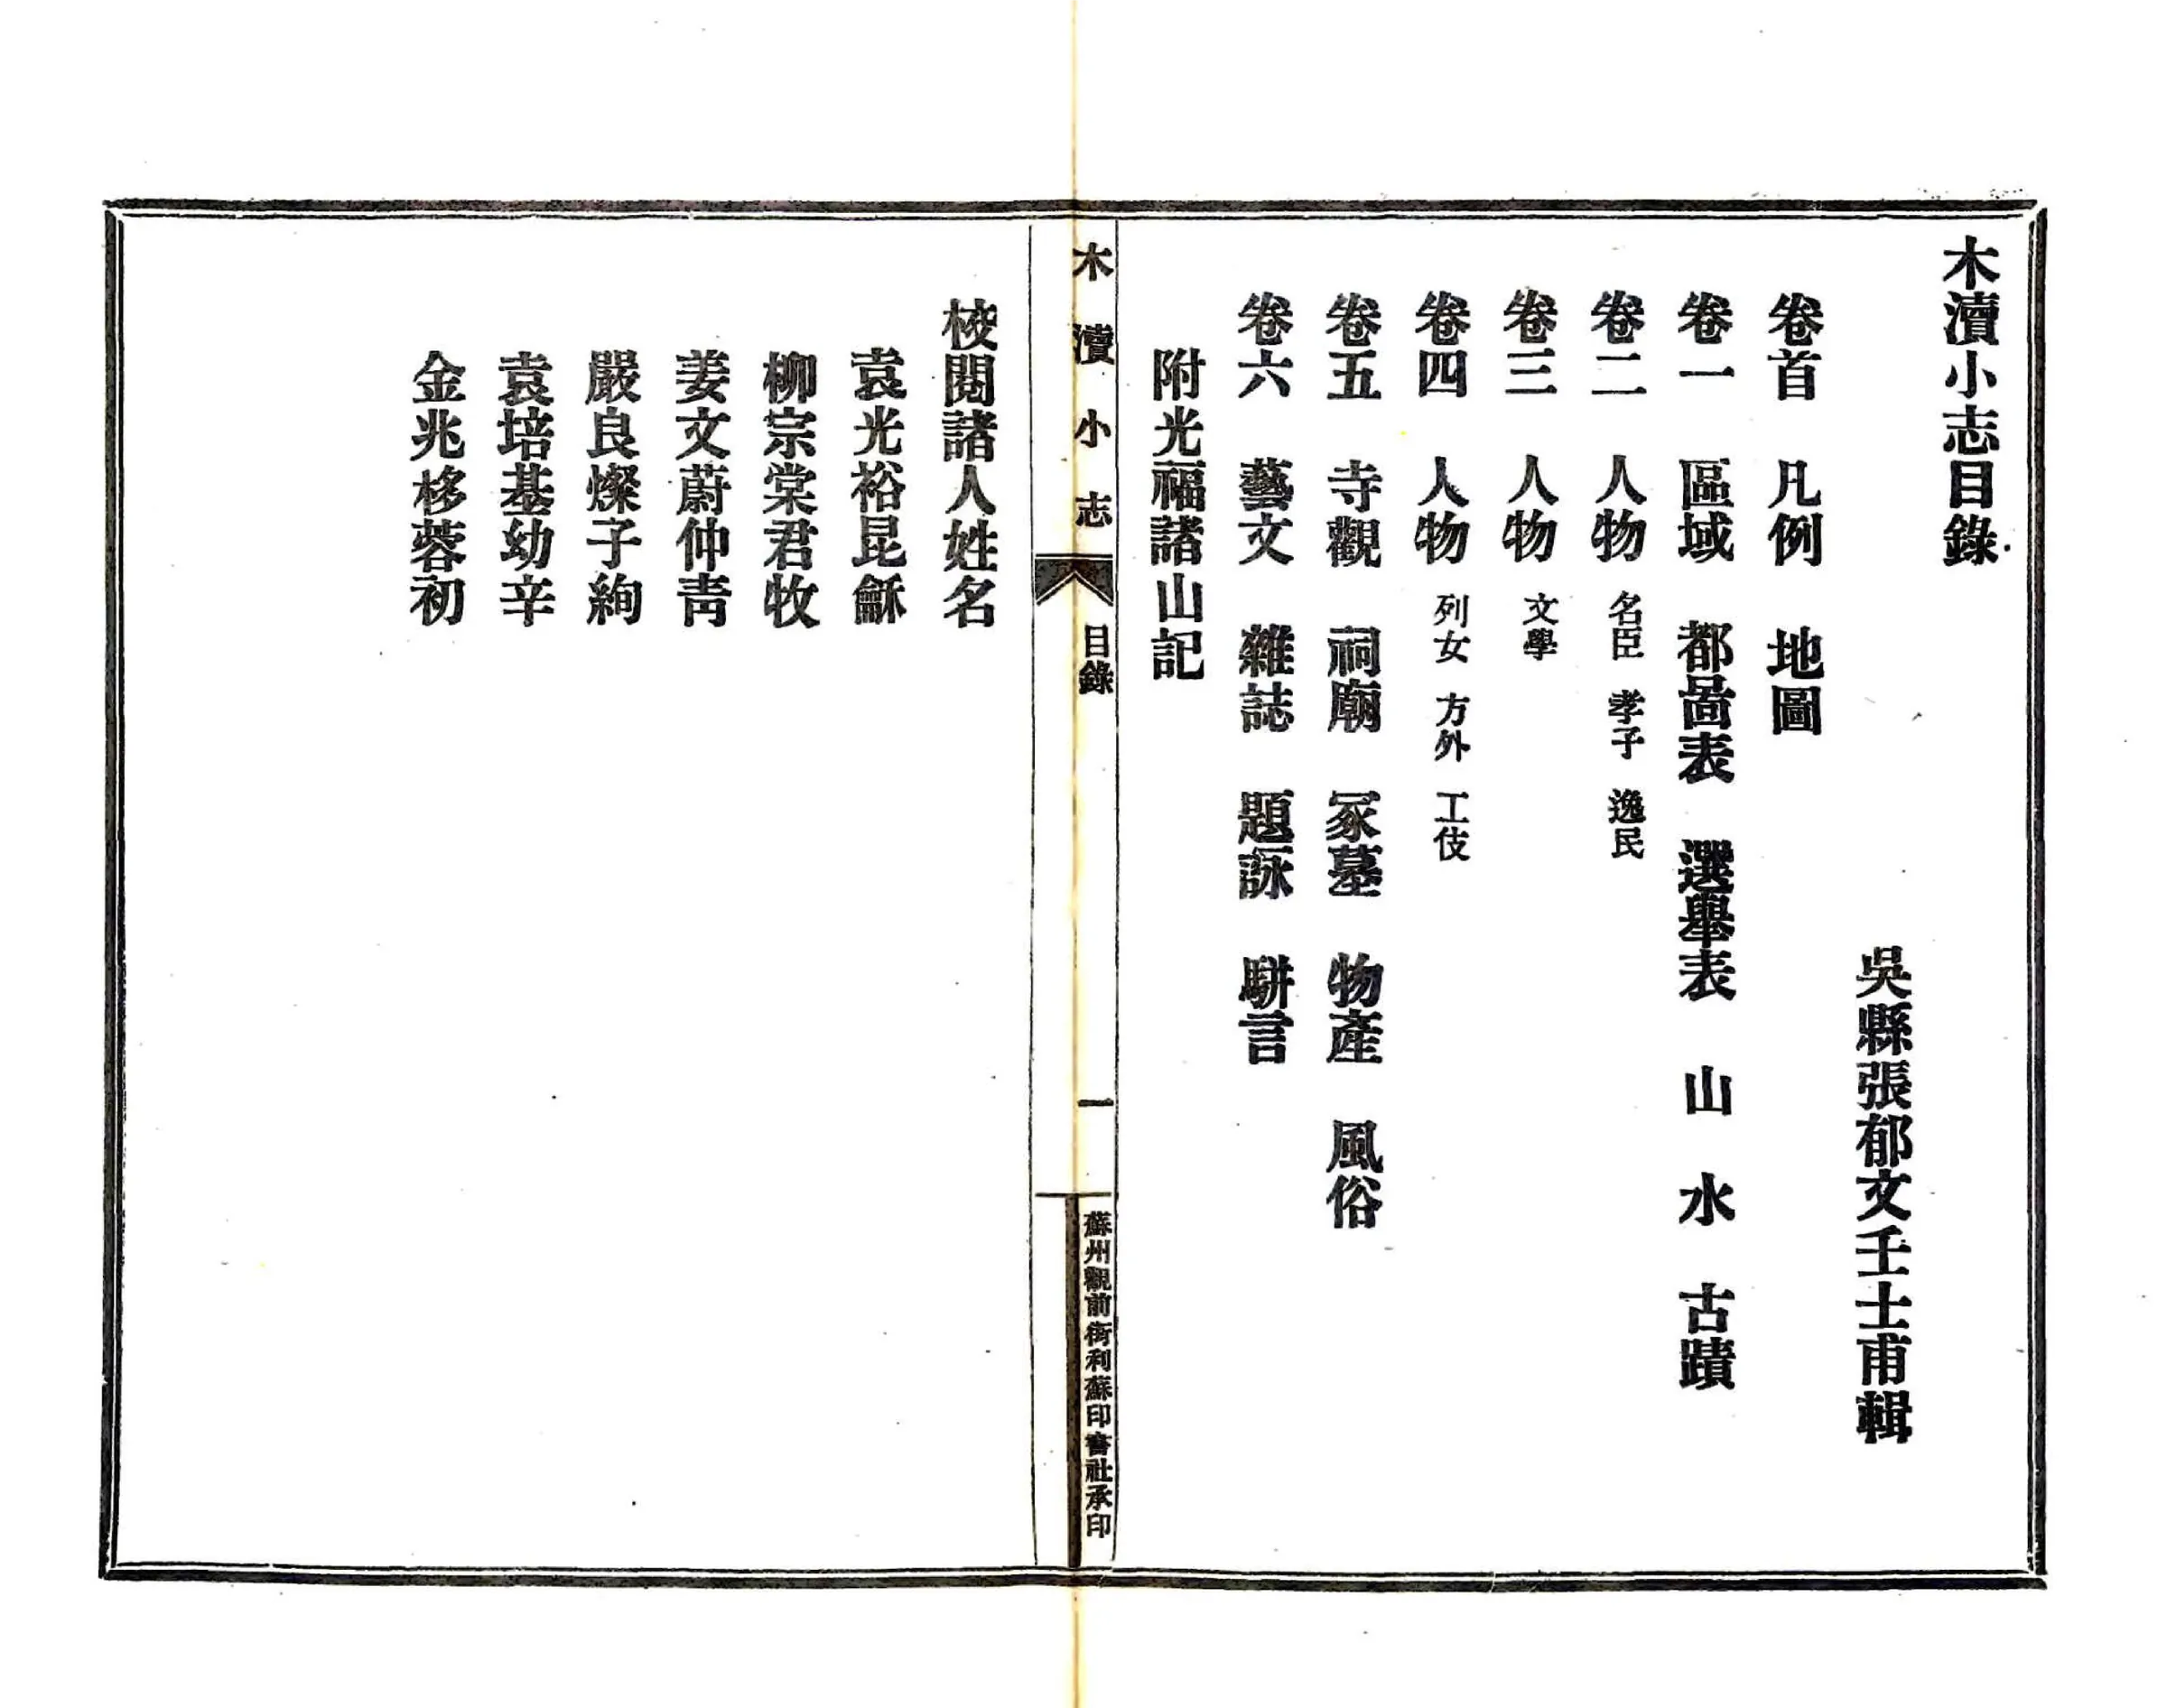 木瀆小志目錄
吳縣張郁文壬士甫輯
卷首　凡例　地圖
卷一　區域　都啚表　選舉表　山　水　古蹟
卷二　人物　名臣　孝子　逸民
卷三　人物　文學
卷四　人物　列女　方外　工伎
卷五　寺觀　祠廟　冢墓　物產　風俗
卷六　藝文　雜誌　題詠　駢言
附光福諸山記
木瀆小志
目錄
一
蘇州觀前街利蘇印書社承印
校閱諸人姓名
袁光裕昆龢
柳宗棠君牧
姜文蔚仲靑
嚴良燦子絢
袁培基幼辛
金兆栘蓉初